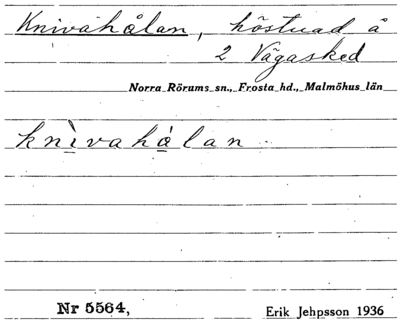 Knivahålan, höstuad å
2 Vägasked
Norra Rörums sn., Frosta hd., Malmöhus län
knìvahå̀lan
Nr 5564,
Erik Jehpsson 1936